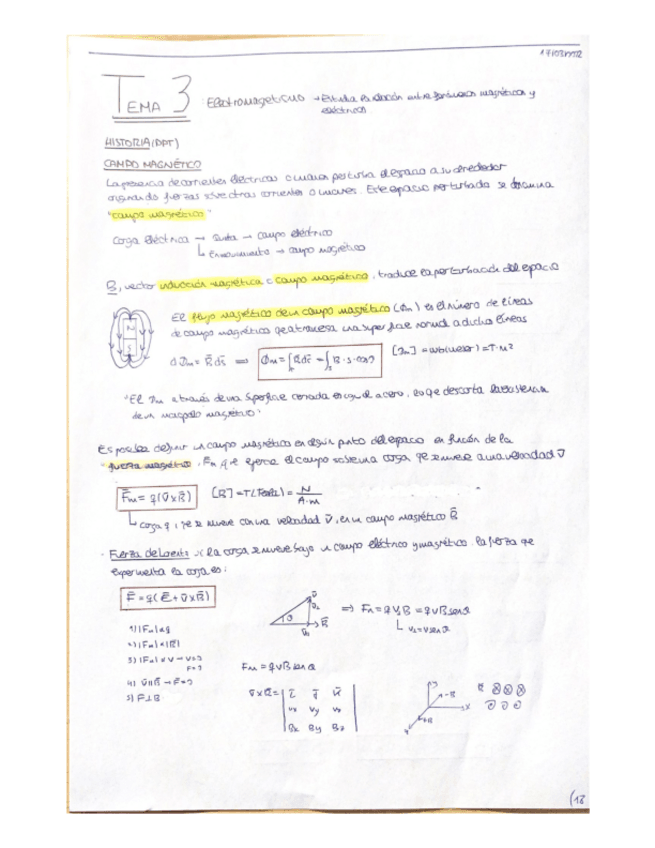 17/03/2022
TEMA 3: Electromagnetismo → Estudia la relación entre fenómenos magnéticos y
eléctricos
HISTORIA (PPT)
CAMPO MAGNÉTICO
La presencia de corrientes eléctricas o imanes perturba el espacio a su alrededor
originando fuerzas sobre otras corrientes o imanes. Este espacio perturbado se denomina
"campo magnético"
Carga eléctrica → Quieta → campo eléctrico
↳ En movimiento → campo magnético
B, vector inducción magnética o campo magnético, traduce la perturbación del espacio
N
S
El flujo magnético de un campo magnético (Φm) es el número de líneas
de campo magnético que atraviesa una superficie normal a dichas líneas
dΦm = B̄ ds̄ ⟹ Φm = ∫ B̄ ds̄ = ∫ B · s · cosθ
[Φm] = wb (weber) = T·m²
"El Φm a través de una superficie cerrada es igual a cero, lo que descarta la existencia
de un monopolo magnético"
Es posible definir un campo magnético en algún punto del espacio en función de la
fuerza magnética, F̄m que ejerce el campo sobre una carga que se mueve a una velocidad v̄
F̄m = q(v̄ x B̄)
[B] = T (Tesla) = N / A·m
↳ Carga q, que se mueve con una velocidad v̄, en un campo magnético B̄
- Fuerza de Lorentz: si la carga se mueve bajo un campo eléctrico y magnético. la fuerza que
experimenta la carga es:
F̄ = q(Ē + v̄ x B̄)
θ
v̄
B̄
⟹ Fm = q v⊥ B = q v B senθ
↳ v⊥ = v senθ
1) |Fm| α q
2) |Fm| α |B̄|
3) |Fm| α v → v=0
F=0
4) v̄ || B̄ → F=0
5) F ⊥ B
Fm = q v B senθ
v̄ x B̄ = | i j k |
| vx vy vz |
| Bx By Bz |
-B
x
+B
⊗ ⊗ ⊗
⊙ ⊙ ⊙
(18